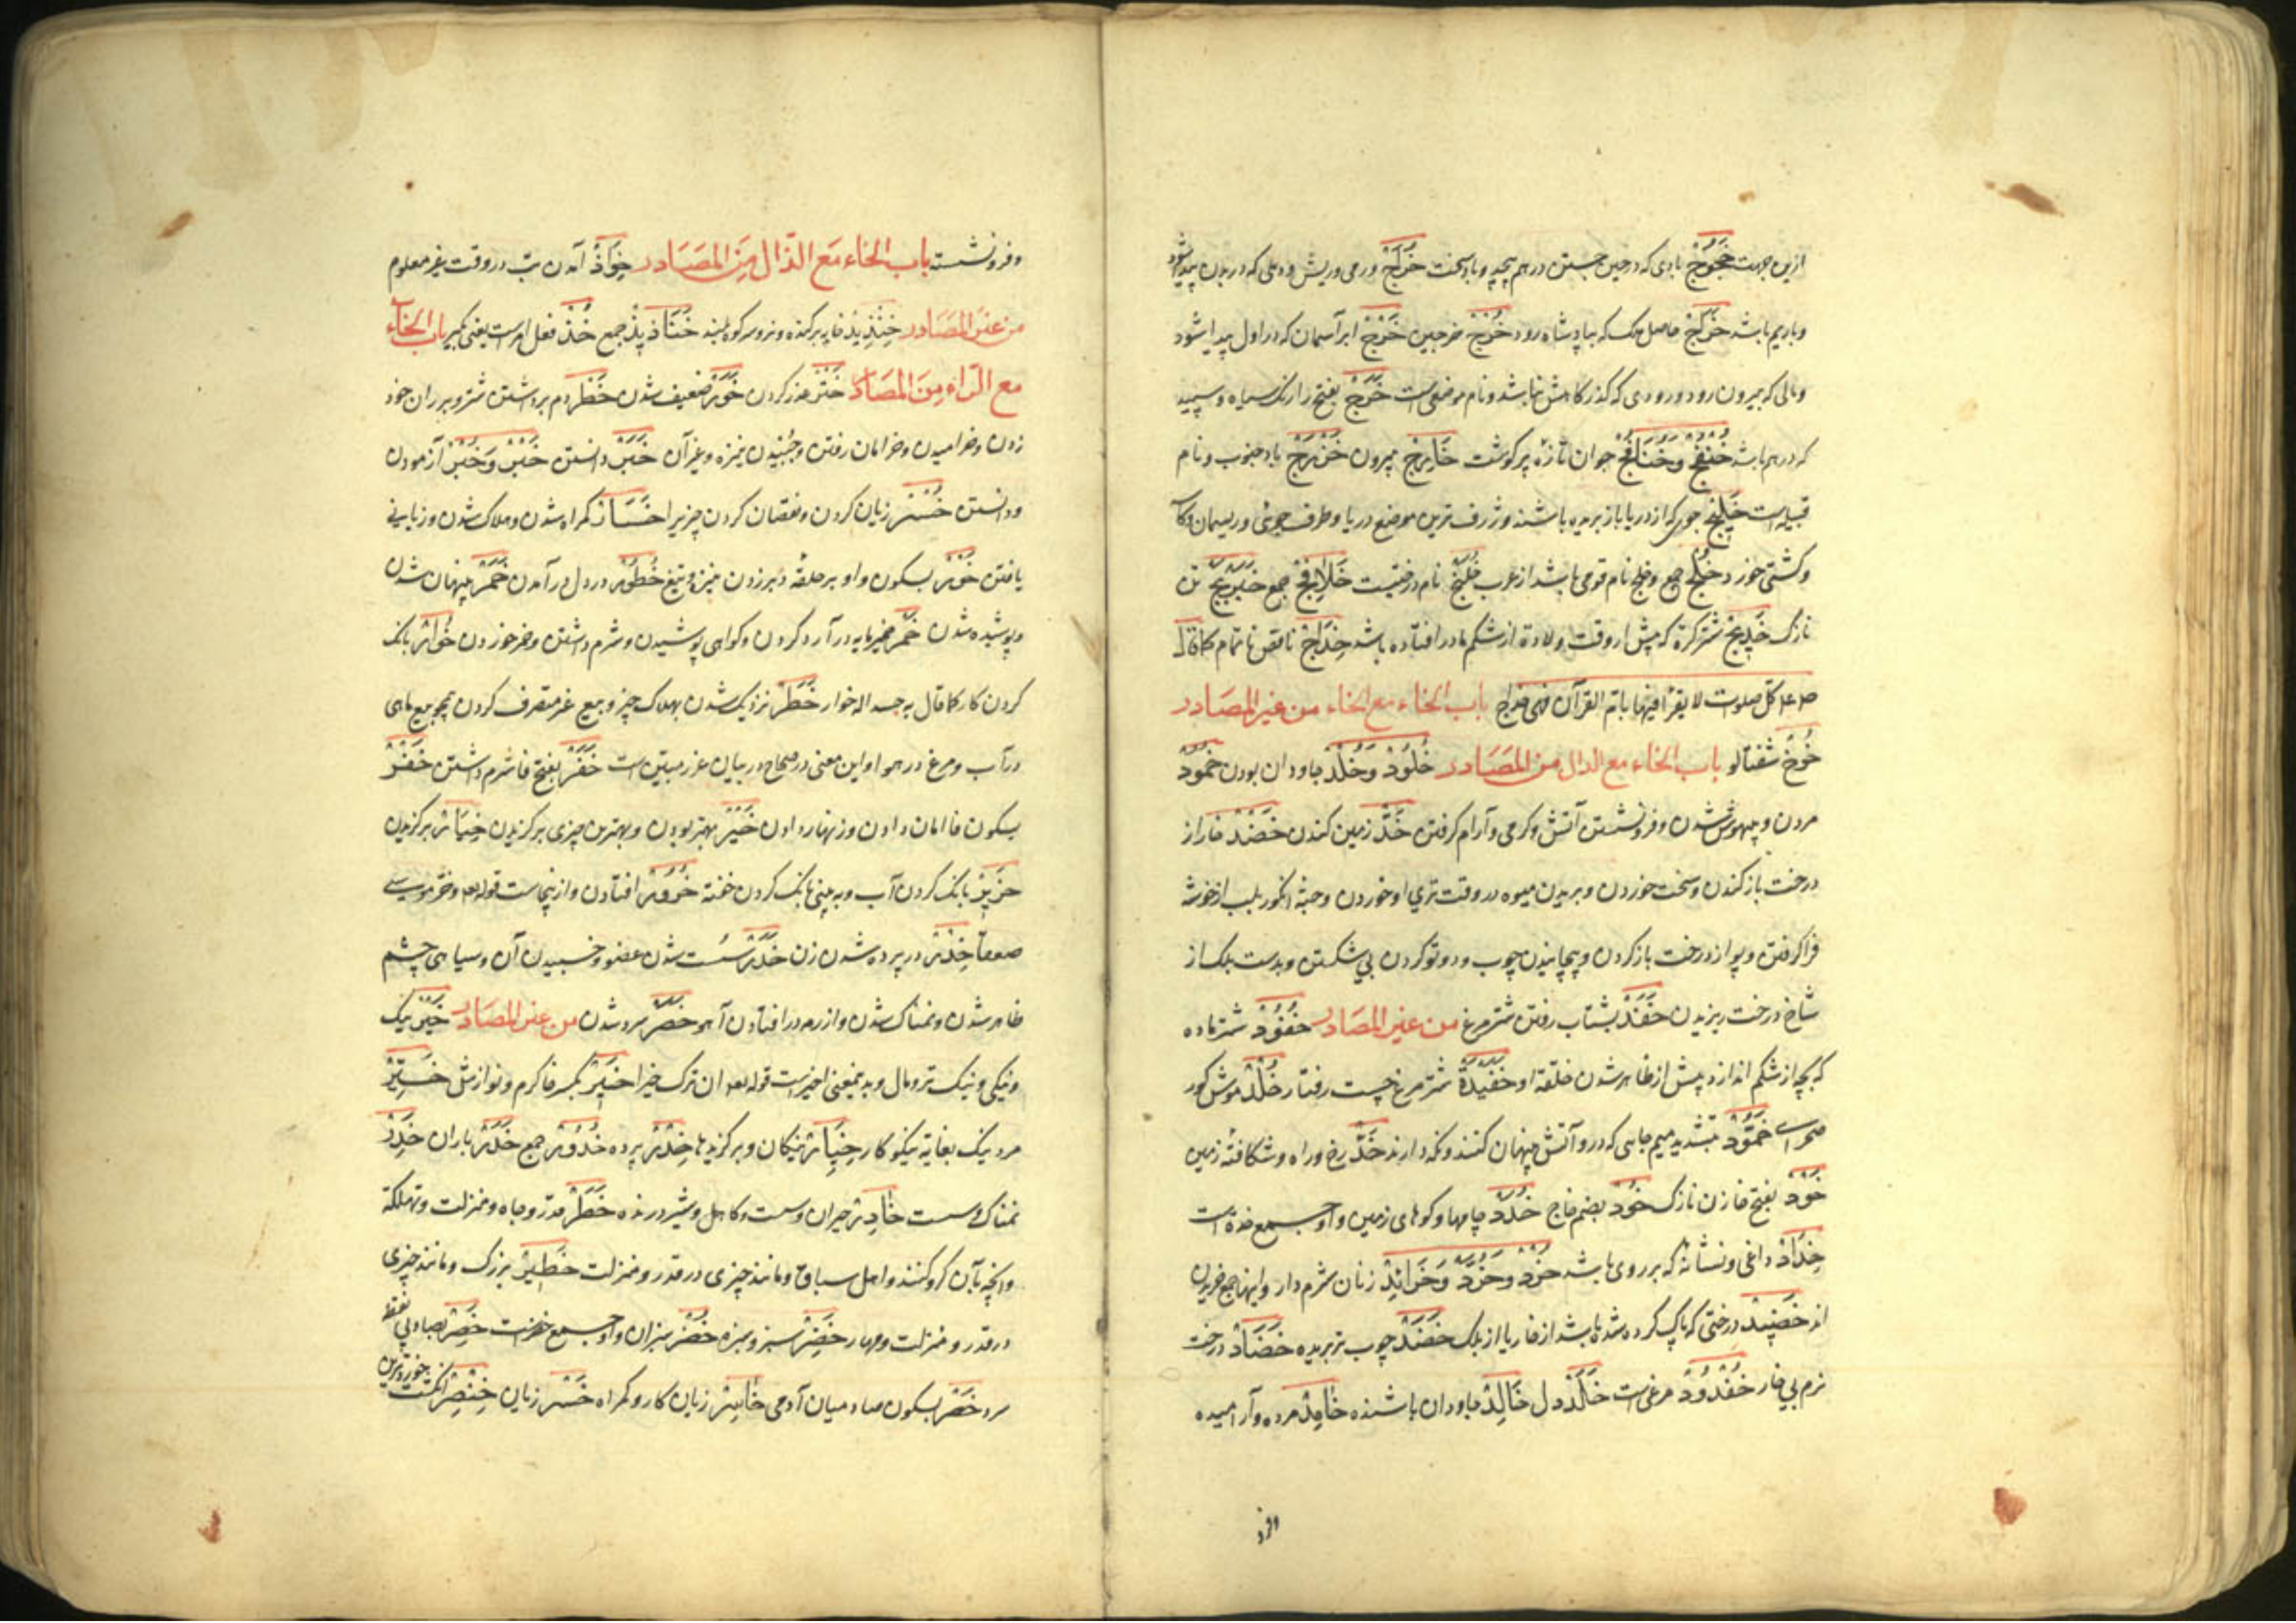 ازین جهت خَجُوْجْ بادی که در حین جستن در هم پیچد و باد سخت خُرَاجْ ورمی و ریش و دملی که در بدن پیدا شود
و با ریم باشد خَرَاجْ حاصل ملک که بپادشاه رود خُرْجْ خرجین خَرْجْ ابر آسمان که در اول پیدا شود
و مالی که بیرون رود و رودی که گذرگاهش نباشد و نام موضعی است خَرَجْ بفتح را رنگ سیاه و سپید
که در هم باشد خُنْفُجْ وَخُنَافِجْ جوان تازه پر گوشت خَارِجْ بیرون خَزْرَجْ باد جنوب و نام
قبیله است خَلِیْجْ جوی که از دریا باز بریده باشند و ژرف ترین موضع دریا و طرف جوئی و ریسمان
و کشتی خورد خُلُجْ جمع و خلج نام قومی باشد از عرب خَلَنْجْ نام درختیست خَلَانِجْ جمع خَبَرْبَجْ تن
نازک خَدِیْجْ شتر کره که پیش از وقت ولادة از شکم مادر افتاده باشد خِدَاجْ ناقص ناتمام کما قال
صلعم کل صلوت لا یقرأ فیها بام القرآن فهی خداج باب الخاء مع الخاء من غیر المصادر
خُوْخْ شفتالو باب الخاء مع الدال من المصَادر خُلُوْدْ وَخُلْدْ جاودان بودن خُمُودْ
مردن و بیهوش شدن و فرو نشستن آتش و گرمی و آرام گرفتن خَدّْ زمین کندن خَضْدْ خار از
درخت باز کندن و سخت خوردن و بریدن میوه در وقت تری او خوردن و حبهٔ انگور بلب از خوشه
فرا گرفتن و پواز درخت باز کردن و پیچانیدن چوب و دوتو کردن بی شکستن و بدست بلک از
شاخ درخت ریزیدن خَفَنْدْ بشتاب رفتن شتر مرغ من غیر المصَادر خَفُوْدْ شتر ماده
که بچه از شکم اندازد پیش از ظاهر شدن خلقة او خَفَیْدَدْ شتر مرغ چست رفتار خُلْدْ موش کور
صحرا خَمُّوْدْ بتشدید میم جایی که درو آتش پنهان کنند و نگه دارند خَدّْ رخ و راه و شکافتهٔ زمین
خَوْدْ بفتح خا زن نازک خُوْد بضم خا ج خُدَدْ چاهها و گوهای زمین و او جمع خده است
خِدَادْ داغی و نشانهٔ که بر روی باشد خُرُدْ وَخُرَّدْ وَخَرَائِدْ زنان شرم دار و اینها جمع خریدن
اند خَضِیْد درختی که پاک کرده شده باشد از خار یا از بلک خَضَدْ چوب تر بریده خَضَادْ درخت
نرم بی خار خُفْدُوْدْ مرغی است خَلَدْ دل خَالِدْ جاودان باشنده خَامِدْ مرده و آرامیده
وفرو
و فرو نشسته باب الخاء مَع الذّال مِنَ المصَادر خِوَاذْ آمدن تب در وقت غیر معلوم
من غیر المصَادر خِنْذِیذْ خایه بر کنده و نر و سر کوه بلند خَنَاذِیذْ جمع خُذْ فعل امر است یعنی بگیر باب الخاء
مع الرّاء مِنَ المصَادر خَتْرْ غدر کردن خَوَرْ ضعیف شدن خَطْرْ دم برداشتن شتر و بر ران خود
زدن و خرامیدن و خرامان رفتن و جنبیدن نیزه و غیر آن خَبَرْ دانستن خَبْرْ وَخُبْرْ آزمودن
و دانستن خُسْرْ زیان کردن و نقصان کردن چیزیرا خَسَارْ گمراه شدن و هلاک شدن و زیانی
یافتن خَوْرْ بسکون واو بر حلقهٔ دبر زدن نیزه و تیغ خُطُوْرْ در دل در آمدن خَمَرْ پنهان شدن
و پوشیده شدن خَمْرْ خمیر مایه در آرد کردن و گواهی پوشیدن و شرم داشتن و خمر خوردن خُوَارْ بانگ
کردن گاو کما قال به جسد اله خوار خَطَرْ نزدیک شدن بهلاک چیز و بیع غیر متصرف کردن همچو بیع ماهی
در آب و مرغ در هوا و این معنی در صحاح در بیان غرر مبین است خَفَرْ بفتح فا شرم داشتن خَفْرْ
بسکون فا امان دادن و زنهار دادن خَیْرْ بهتر بودن و بهترین چیزی برگزیدن خِیَارْ برگزیدن
خَرِیْرْ بانگ کردن آب و به بینی بانگ کردن خفته خُرُوْرْ افتادن و از ینجاست قوله تعه و خر موسی
صعقا خِدْرْ در پرده شدن زن خَدَرْ سست شدن عضو و خسبیدن آن و سیاهی چشم
ظاهر شدن و نمناک شدن و از رمه در افتادن آهو خَصَرْ سرد شدن من غیر المصَادر خَیْرْ نیک
و نیکی و نیک تر و مال و بدینمعنی اخیر است قوله تعه ان ترک خیرا خِیْرْ بکسر خا کرم و نوازش خَیِّرْ
مرد نیک بغایة نیکو کار خِیَارْ نیکان و برگزیدها خِدْرْ پرده خُدُوْرْ جمع خَدَرْ باران خَدِرْ
نمناک و سست خَادِرْ حیران و سست و کاهل و شیر درنده خَطَرْ قدر و جاه و منزلت و تهلکة
و آنچه بآن گرو کنند و اهل سباق و مانند چیزی در قدر و منزلت خَطِیْرْ بزرگ و مانند چیزی
در قدر و منزلت و مهار خَضِرْ سبز و سبزه خُضْرْ سبزان و او جمع خضرت خَصِرْ بصاد بی نقطه
سرد خَصْرْ بسکون صاد میان آدمی خَاسِرْ زیان کار و گمراه خُسْرْ زیان خِنْصِرْ انگشت خوردترین